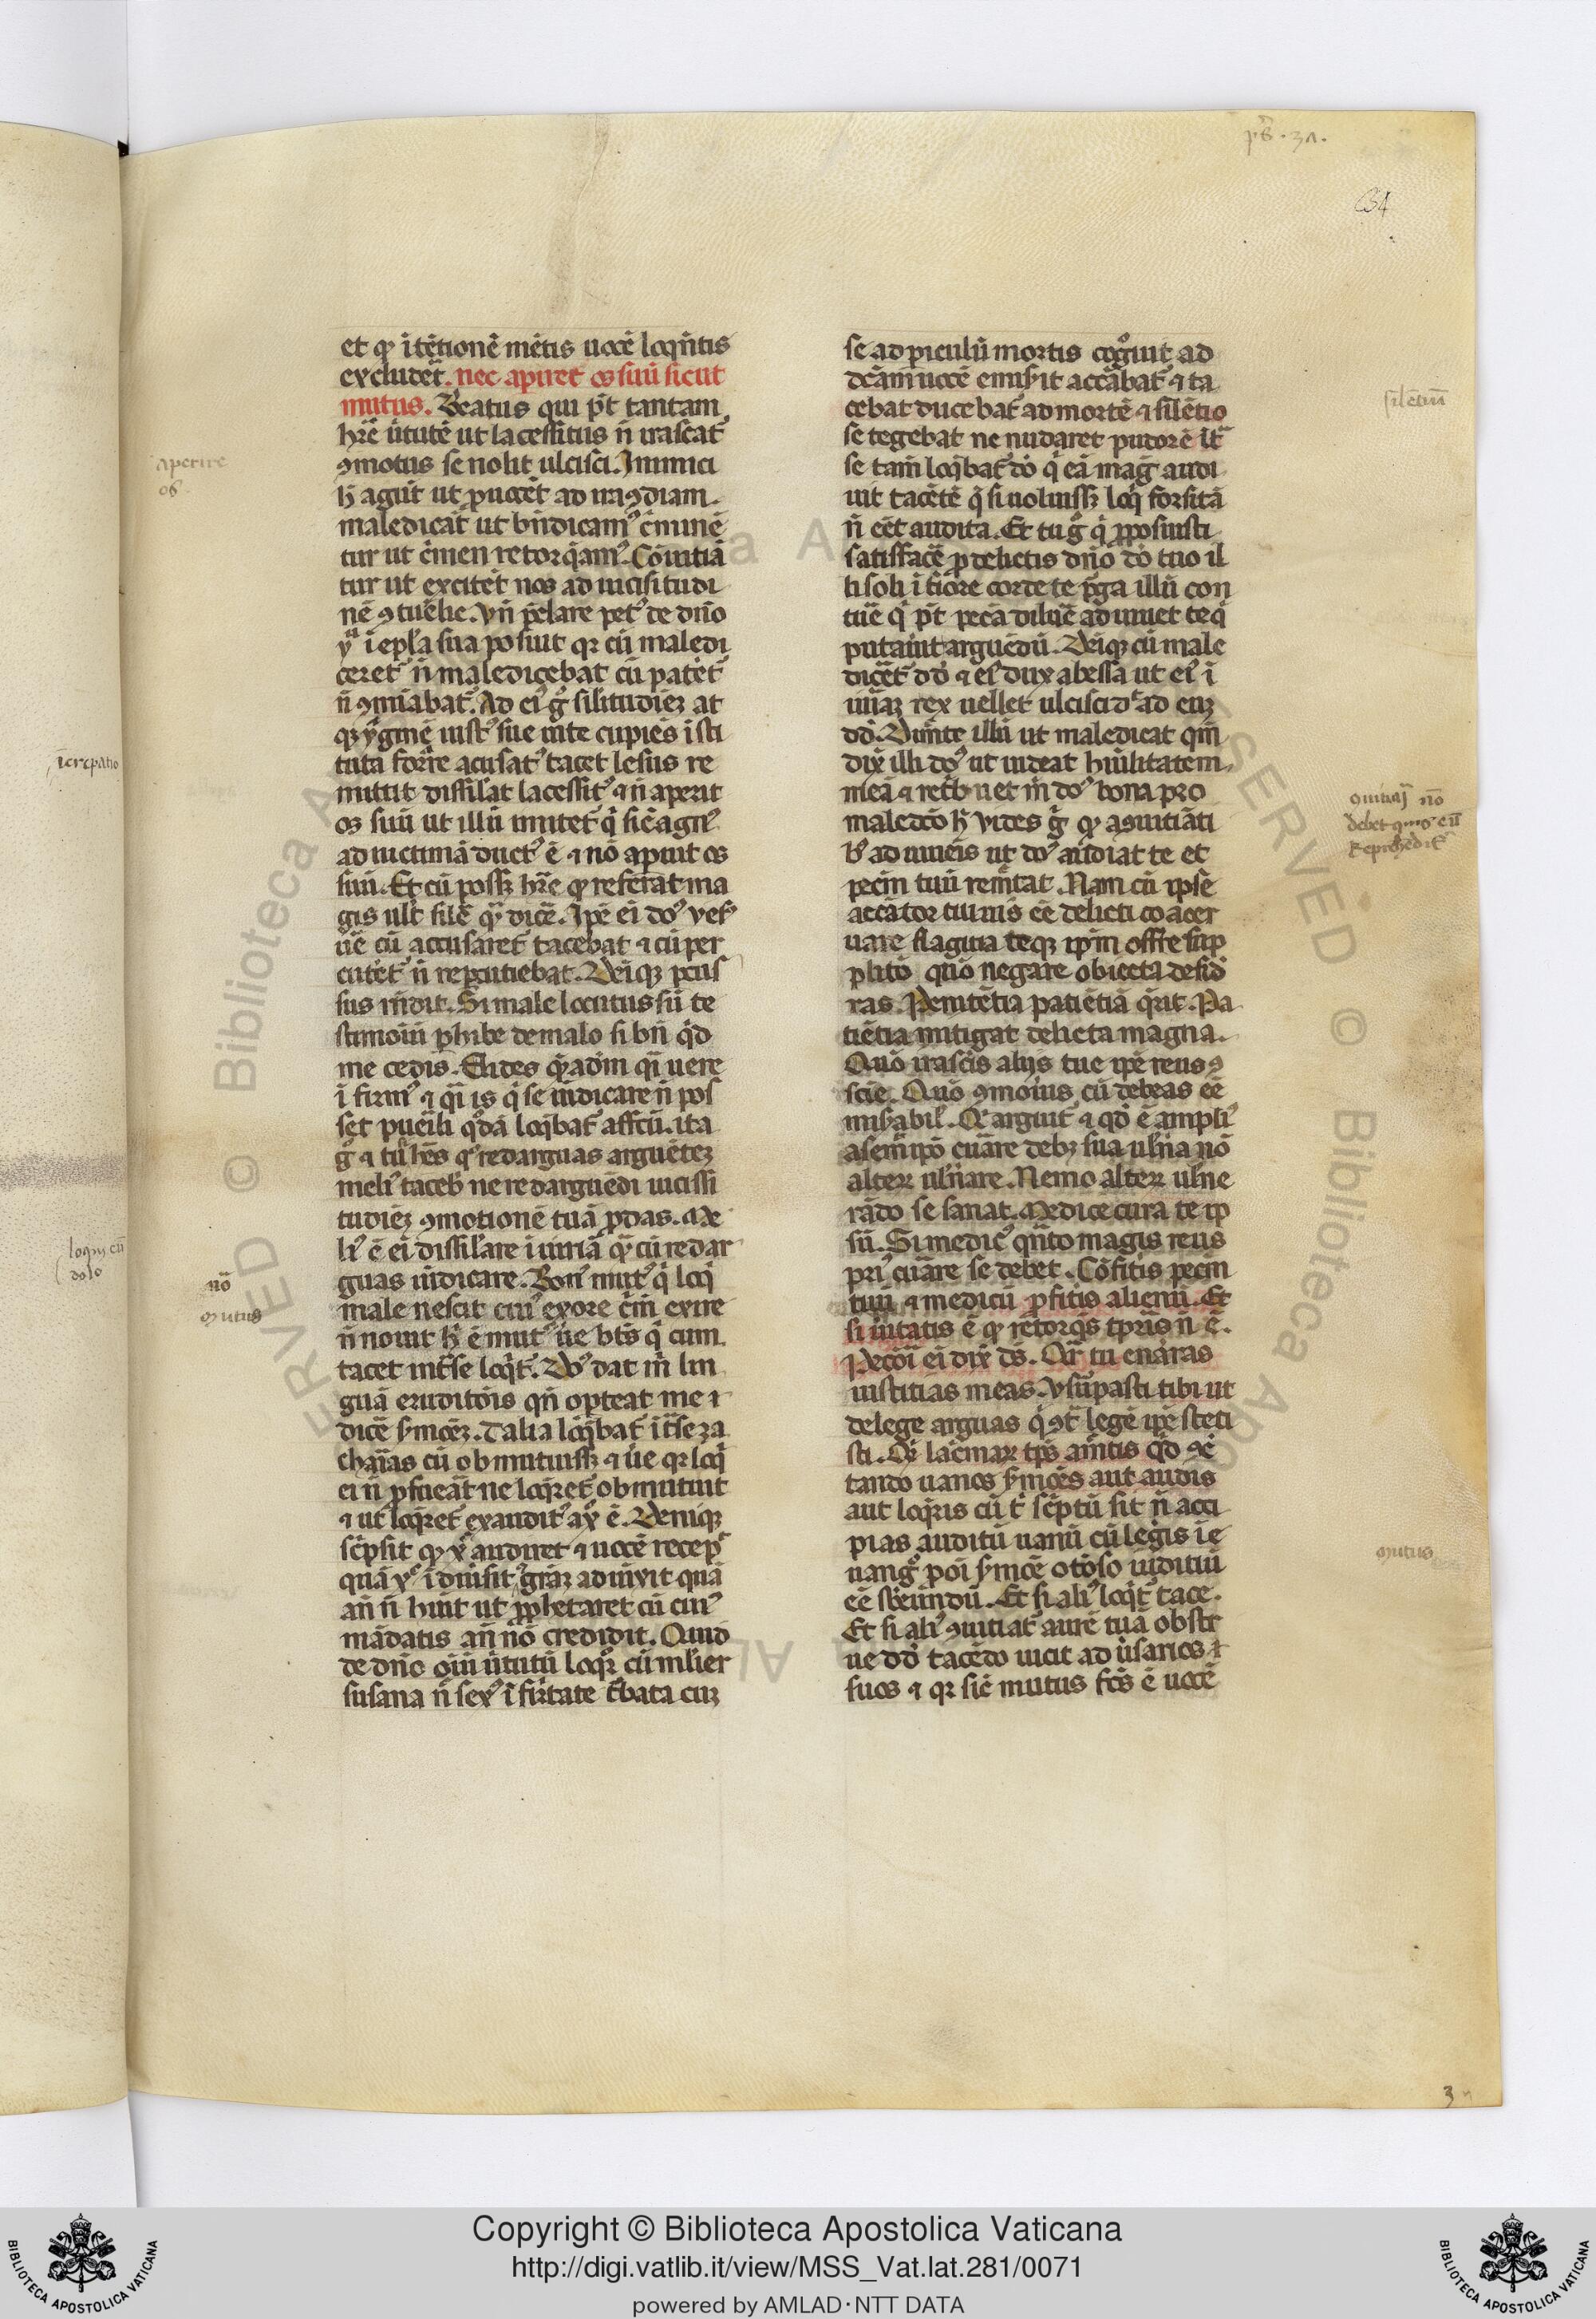 pͣs . 37.
34
et qꝫ ītētionē mētis uocē loqn̄tis
excludēt. nec aperiet os suū sicut
mutus. Beatus qui pōt tantam
hr̄e uͥtutē ut lacessitus n̄ irascat᷑
ꝯmotus se nolit ulcisci. Inimici
h̄ agūt ut puocēt ad iracūdiam.
maledicāt ut bn̄dicamꝰ cͥminē
tur ut cͥmen retorqͣamꝰ. Cōuitiā
tur ut excitēt nos ad uicisitudi
nē ꝯtumelie. Vn̄ p̄clare petꝰ de dn̄o
ī epl̄a sua posuit qꝛ cū maledi
ceret᷑ n̄ maledicebat cū patēt᷑
n̄ ꝯminabat᷑. Ad eiꝰ gͦ silitudīeꝫ
tuta accusatꝰ tacet lesus re
mittit dissimulat lacessitꝰ ⁊ n̄ aperit
os suū ut illū imitet᷑ qͥ sic̄ agnꝰ
ad uictimā ductꝰ ē ⁊ nō apuit os
suū. Et cū possꝫ hr̄e qꝫ referat ma
gis uult silē qͣ dicē. Ip̄e ei dꝰ
cū accusaret᷑ tacebat ⁊ cū per
cutēt᷑ n̄ repcutiebat. Deiqꝫ pcus
sus rn̄dit. Si male locutus sū te
stimoiū phibe de malo si bn̄ qͥd
me cedis. Uides
ī firmꝰ ⁊ is qͥ se uīdicare n̄ pos
set puerili loqͣbat᷑ affcū. ita
gͦ ⁊ tū hēs qͦ redarguas arguēteꝫ
meliꝰ tacebis ne redarguēdi uicissi
tudīeꝫ ꝯmotionē tuā pdas. Me
liꝰ ē ei dissilare iniuriā qͣ cū redar
guas uīdicare. Bonꝰ mutꝰ qͥ loqͥ
male nescit cuiꝰ ex ore cͥm̄ exire
n̄ nouit h̄ ē mutꝰ ue bt̄s qͥ cum
tacet int̄ se loqͥt᷑. Dꝰ dat m̄ lin
guā eruditōis qn̄ opteat me
dicē sͬmōeꝫ. Talia loqͣbat᷑ īt̄ se za
charias cū obmutuissꝫ ⁊ ue qꝛ loqͥ
ei n̄ pfueāt ne loqͣret᷑ obmutuit
⁊ ut loqͣret᷑ exauditꝰ ē. Deniqꝫ
sc̄psit qꝫ audiret ⁊ uocē recep͛
quā grāꝫ adinuīt quā
an̄ n̄ huit ut pphetaret cū cuiꝰ
mādatis an̄ nō credidit. Quid
de dn̄o oīū uͥtutū loqͣr cū mlier
susana ī firītate cuꝫ
se ad piculū mortis cogͦuit ad
dcām uocē emisit accābat᷑ ⁊ ta
cebat ducebat᷑ ad mortē ⁊ silētio
se tegebat ne nudaret pudorē īt͛
se tam̄ loqͣbat᷑ dō qͥ eā mag̅ audi
uit tacētē qͣ si uoluissꝫ loqͥ forsitā
n̄ eēt audita. Et tu gͦ qͥ pposuisti
satisfacē p delictis dn̄o dō tuo il
li soli ī timore corde te p̄ga illū con
tuē qͥ pōt peccā diluē
putauit arguēdū. Deiqꝫ cū male
dicēt᷑ dd̄ ⁊ eiꝰ dux abessa ut eiꝰ ī
iuriaꝫ rex uellet ulcisci ad euꝫ
dd̄. Dimite illū ut maledicat qm̄
dix̄ illi dꝰ ut uideat hūilitatem
meā ⁊ retͥbuet m̄ dꝰ bona pro
maledcō h̄. Vides gͦ qꝫ a ꝯuitiāti
bꝰ ad iuueris ut dꝰ audiat te et
peccm̄ tuū remittat. Nam cū ipse
accātor tui uis ēe delicti coacer
uare flagitia teqꝫ ip̄m offre sup
plitō quō negare obiecta desid
ras. Penitētia patiētiā qͥrit. Pa
tiētia mitigat delicta magna.
Quō irasc̄is alijs tue ip̄e reus ꝯ
scie. Quō ꝯmoūis cū debeas ēe
misabilꝰ. Qͥ arguit᷑ ⁊ qd̄ ē ampliꝰ
a semetipō curare debꝫ sua uln̄a nō
alterꝫ uln̄are. Nemo alterꝫ ulne
rādo se sanat. Medice cura te ip̄
sū. Si medicꝰ qn̄to magis reus
priꝰ curare se debet. Cōfitis peccm̄
tuū ⁊ medicū pfitis alienū. Et
si ūitatis ē qꝫ retorqͣs tpris n̄ ē.
Peccōi ei dix̄ ds̄. Qͣr tu enarras
iustitias meas. Vsurpasti tibi ut
de lege arguas qͥ ꝯtͣ legē ip̄e steti
sti. lacͥmaꝝ tp̄s amittis
tando uanos sͬmōes aut audis
aut loqͣris cū t̄ sc̄ptū sit n̄ acci
pias auditū uanū cū legis ī e
uangͦ p oī sͬmōe otioso iudiciū
ēe sbeūndū. Et si aliꝰ loqͥt᷑ tace.
Et si aliꝰ ꝯuitiat᷑ aurē tuā obstr
ue dd̄ tacēdo uicit aduͥsarios
suos ⁊ qꝛ sic̄ mutus fcs̄ ē uocē
aperire
os.
īcrepatio
loqui cū
dolo
nō
mutus
silētiū
ꝯuitiāꝫ nō
debet quis cū
reprehēdit᷑
mutus
3
Copyright © Biblioteca Apostolica Vaticana
http://digi.vatlib.it/view/MSS_Vat.lat.281/0071
powered by AMLAD·NTT DATA
BIBLIOTECA APOSTOLICA VATICANA
BIBLIOTECA APOSTOLICA VATICANA